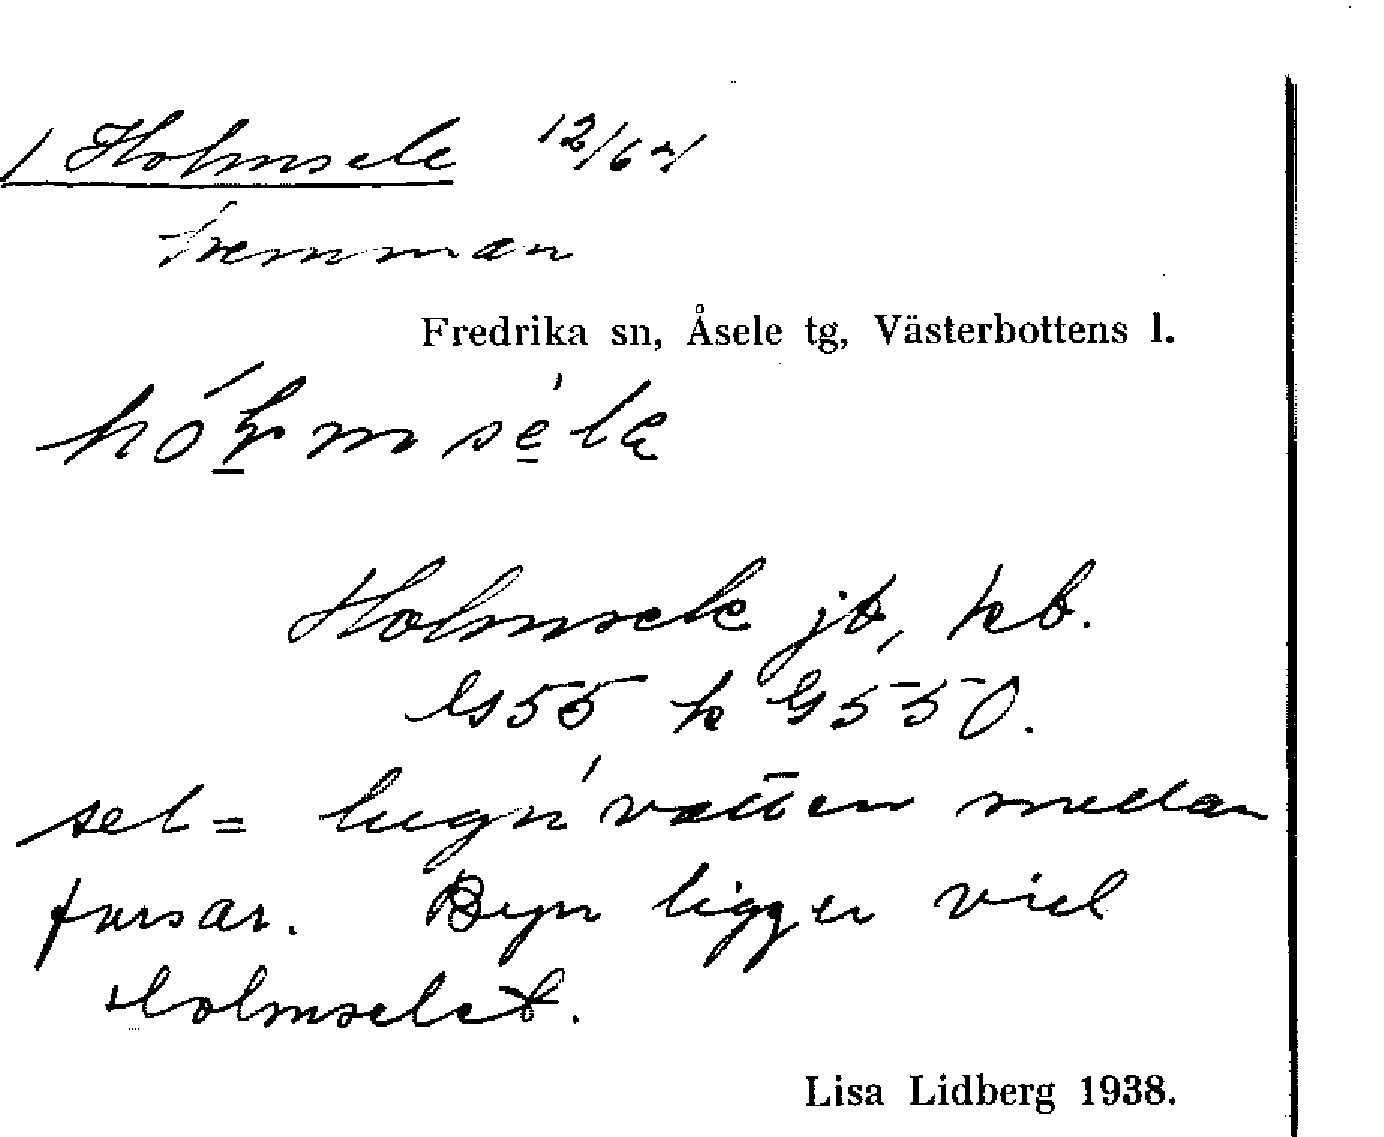 / Holmsele 12/64
hemman
Fredrika sn, Åsele tg, Västerbottens l.
hólmsèle
Holmsele jb, kb.
G55 k G550.
sel = lugn' vatten mellan
forsar. Byn ligger vid
Holmselet.
Lisa Lidberg 1938.